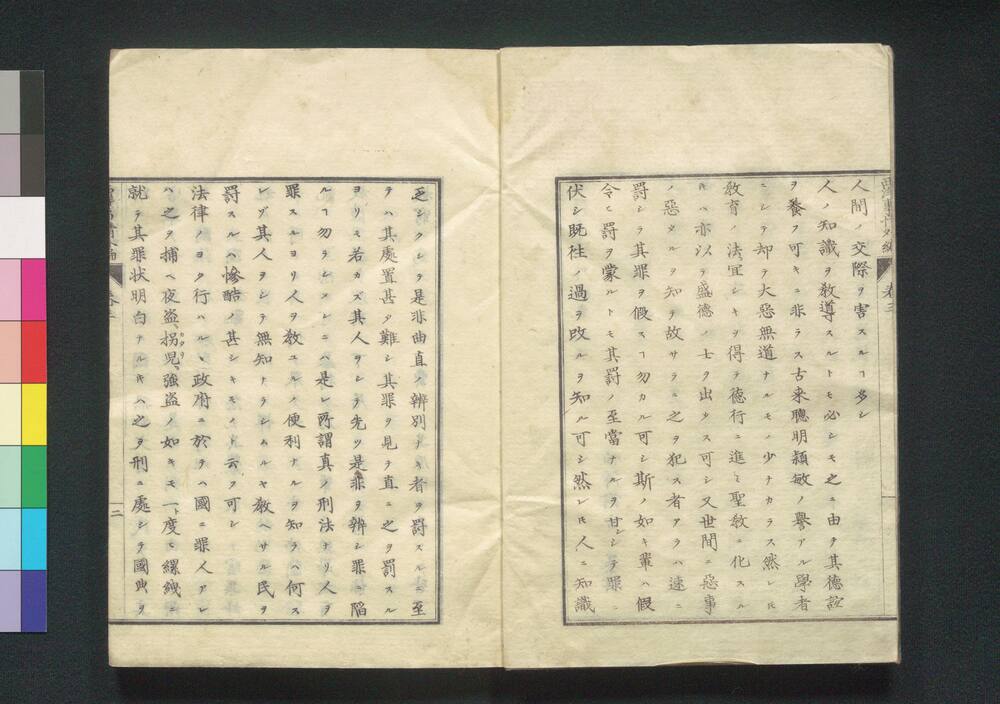 人間ノ交際ヲ害スルヿ多シ
人ノ知識ヲ教導スルトモ必シモ之ニ由テ其德誼
ヲ養フ可キニ非ラス古来聰明頴敏ノ譽アル學者
ニシテ却テ大惡無道ナルモノ少ナカラス然レ𪜈
教育ノ法宜シキヲ得テ德行ニ進ミ聖教ニ化スル
𪜈ハ亦以テ盛德ノ士ヲ出タス可シ又世間ニ惡事
ノ惡タルヲ知テ故サラニ之ヲ犯ス者アラハ速ニ
罰シテ其罪ヲ假スヿ勿カル可シ斯ノ如キ輩ハ假
令ヒ罰ヲ蒙ルトモ其罰ノ至當ナルヲ甘シシテ罪ニ
伏シ既往ノ過ヲ改ムルヲ知ル可シ然レ𪜈人ニ知識
乏シクシテ是非曲直ノ辨別ナキ者ヲ罰スルニ至
テハ其處置甚タ難シ其罪ヲ見テ直ニ之ヲ罰スル
ヨリモ若カズ其人ヲシテ先ツ是非ヲ辨シ罪ニ陥
ルヿ勿ラシメンニハ是レ所謂真ノ刑法ナリ人ヲ
罪スルヨリ人ヲ教ユルノ便利ナルヲ知ラハ何ス
レゾ其人ヲシテ無知ナラシムルヤ教ヘサル民ヲ
罰スルハ惨酷ノ甚シキモノト云フ可シ
法律ノヨク行ハルヽ政府ニ於テハ國ニ罪人アレ
ハ之ヲ捕ヘ夜盗、拐児、強盗ノ如キモ一ト度ヒ縲絏ニ
就テ其罪状明白ナルキハ之ヲ刑ニ處シテ國典ヲ
卷三
二